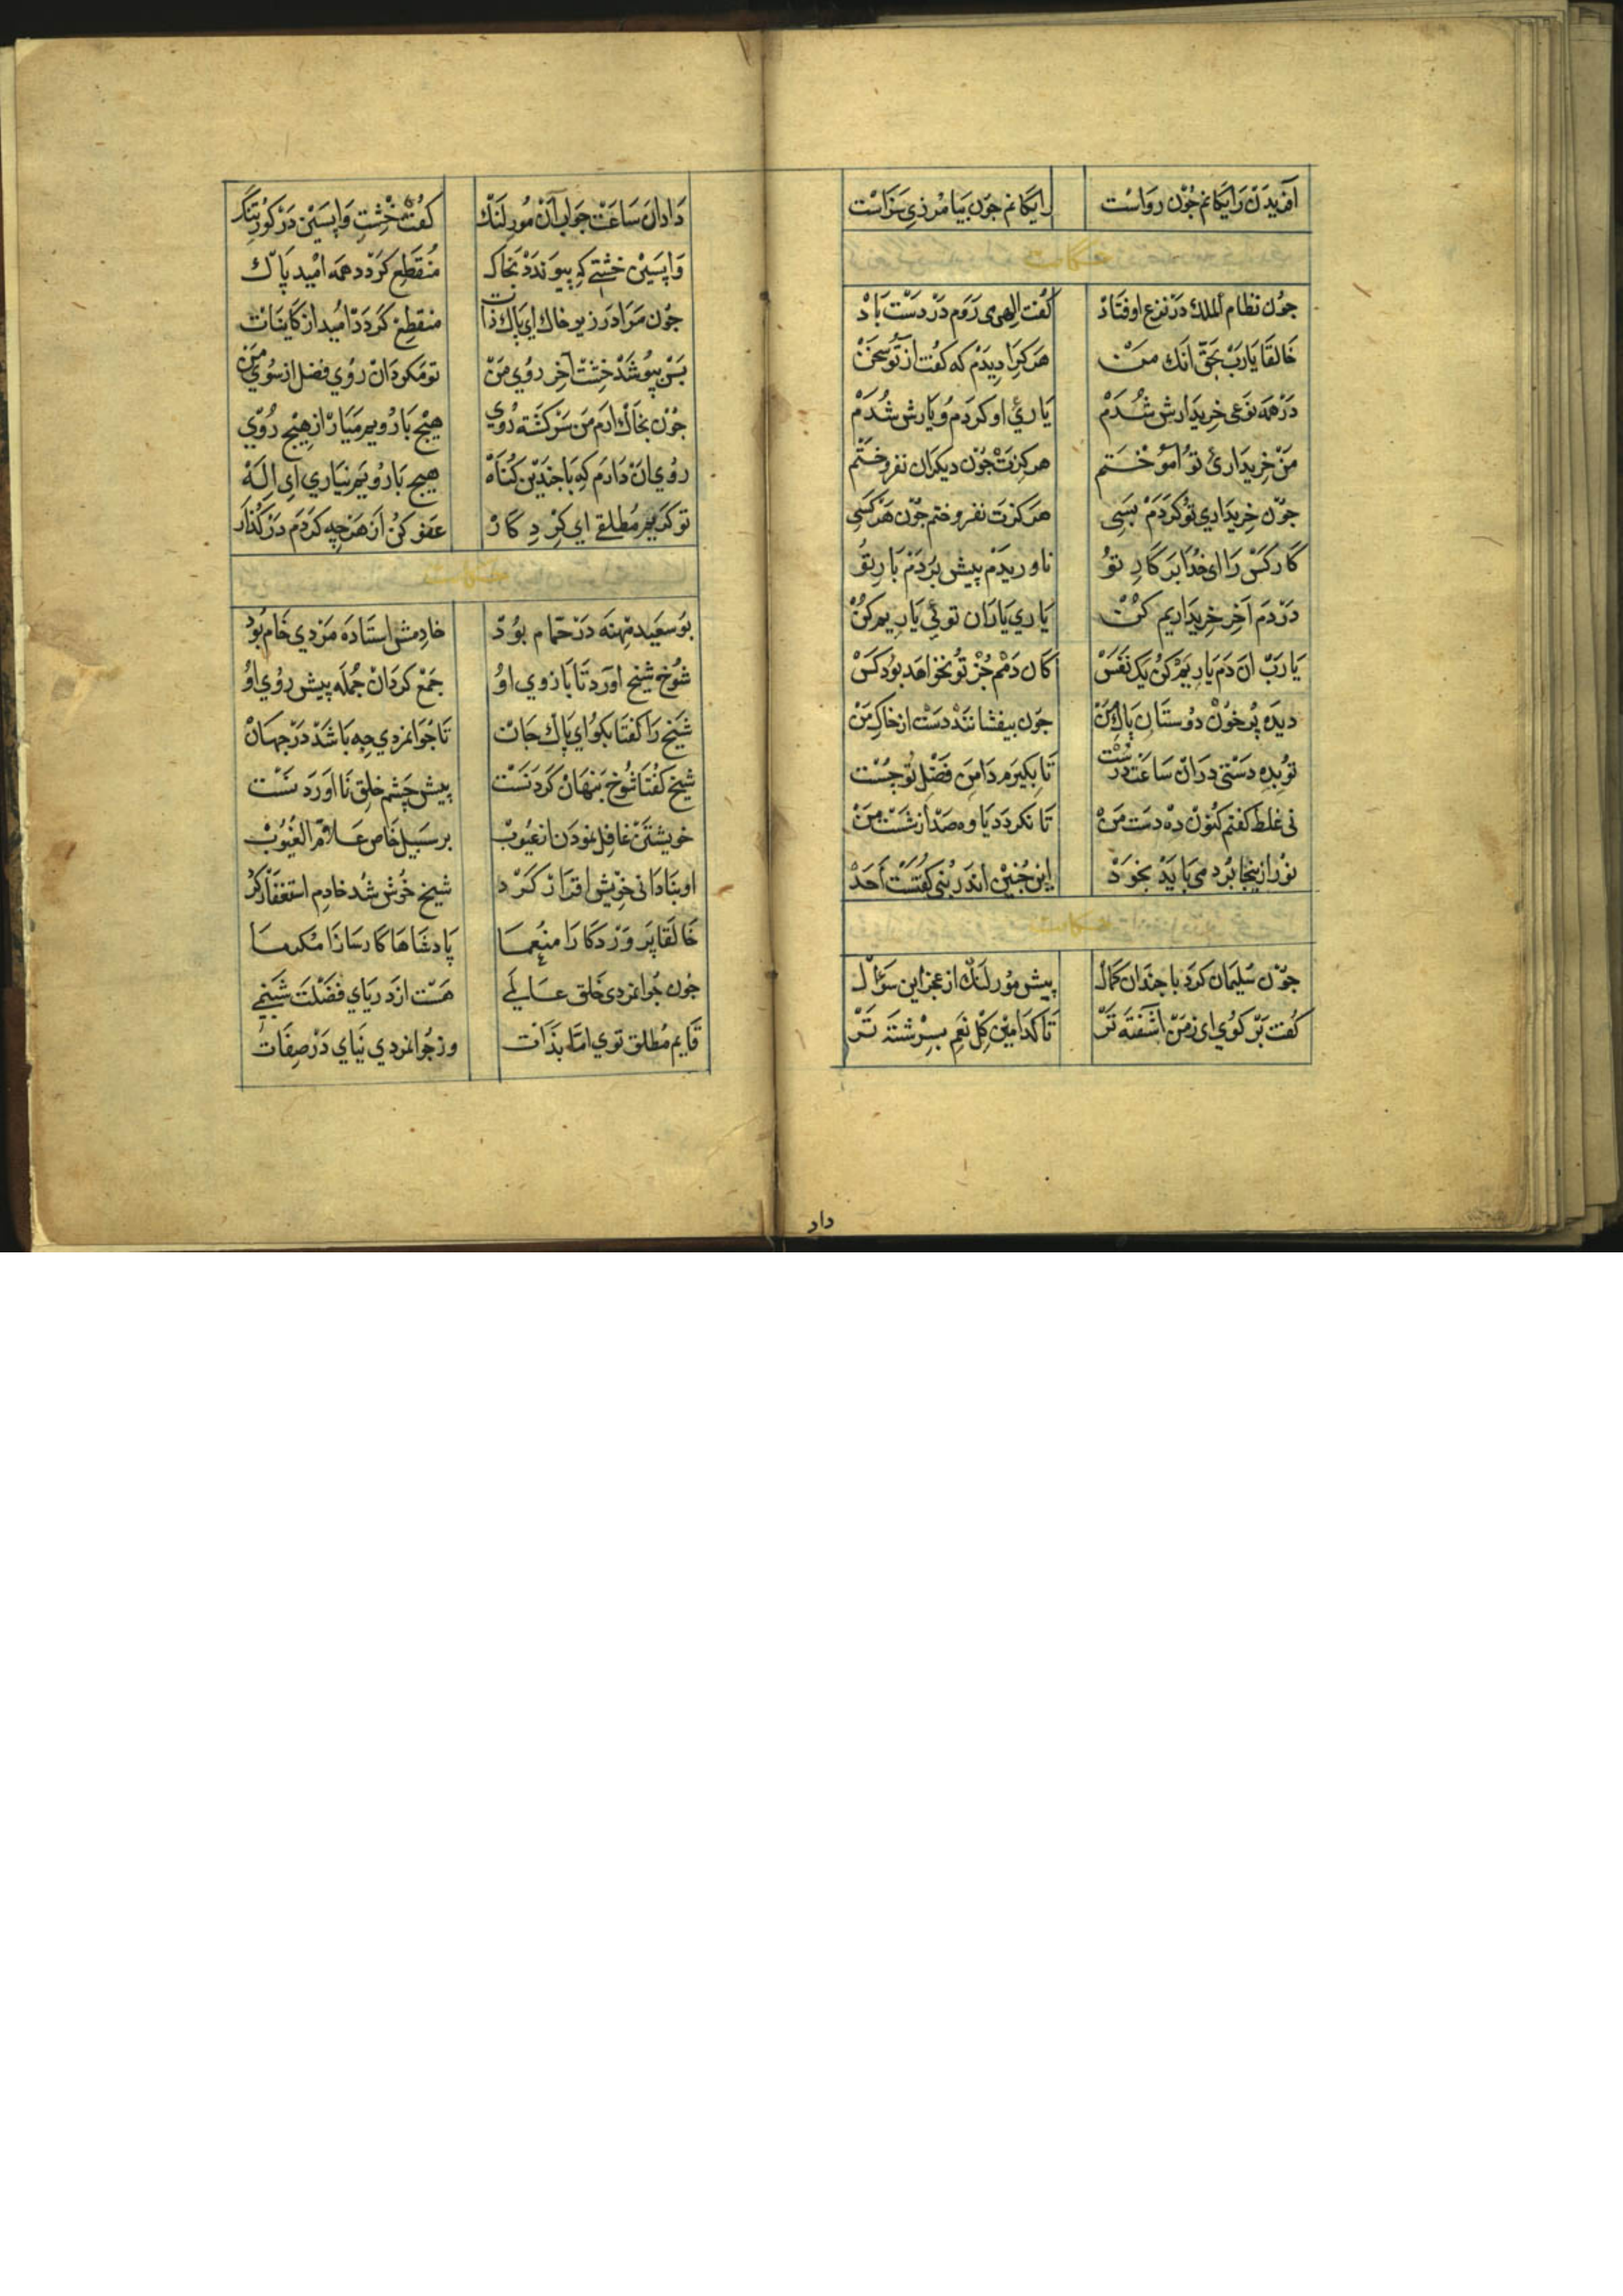 آفریدن رایکانم جون رواست رایکانم جون بیامرزی سزاست
حکایت
جون نظام الملك در نزع اوفتاد کفت الهی می روم در دست باد
خالقا یارب بحق آنك من هر کرا دیدم که کفت از تو سخن
در همه نوعی خریدارش شدم یاری او کردم و یارش شدم
من خریداری تو آموختم هرکزت جون دیکران نفروختم
جون خریداری تو کردم بسی هرکزت نفروختم جون هر کسی
ناوریدم پیش بردم بار تو
در دم آخر خریداریم کن یاری یاران توئی یاریم کن
یارب آن دم یاریم کن یك نفس کان دمم جز تو نخواهد بود کس
دیده پر خون دوستان پاك من جون بیفشانند دست از خاك من
تو بده دستی در آن ساعت درست تا بکیرم دامن فضل تو جست
نی غلط کفتم کنون ده دست من تا نکردد یاوه صد از شست من
نور ازینجا برد می باید بخود این جنین اندر بنی کفتست احد
حکایت
جون سلیمان کرد با جندان کمال پیش مور لنك از عجز این سؤال
کفت بر کوی ای ز من آشفته تر تا کدامین کل بغم بسرشته تر
داد
داد آن ساعت جواب آن مور لنك کفت خشت واپسین در کور تنك
واپسین خشتی که پیوندد بخاك منقطع کردد همه امید پاك
جون مرا در زیر خاك ای پاك ذات منقطع کردد امید از کاینات
بس بپوشد خشت آخر روی من تو مکردان روی فضل از سوی من
جون بخاك آرم من سرکشته روی هیج با رویم میار از هیج روی
روی آن دارم که با جندین کناه هیج با رویم نیاری ای اله
تو کریم مطلقی ای کردکار عفو کن از هرجه کردم در کذار
حکایت
بو سعید مهنه در حمام بود خادمش استاده مردی خام بود
شوخ شیخ آورد تا بازوی او جمع کردان جمله پیش روی او
شیخ را کفتا بکو ای پاك جان تا جوانمردی جه باشد در جهان
شیخ کفتا شوخ پنهان کردنست پیش چشم خلق نا آوردنست
خویشتن غافل نمودن از عیوب بر سبیل خاص علام الغیوب
او بنادانی خویش اقرار کرد شیخ خوش شد خادم استغفار کرد
خالقا پروردکارا منعما پادشاها کارسازا مکرما
جون جوانمردی خلق عالمی هست از دریای فضلت شبنمی
قایم مطلق توی اما بذات وز جوانمردی نیای در صفات